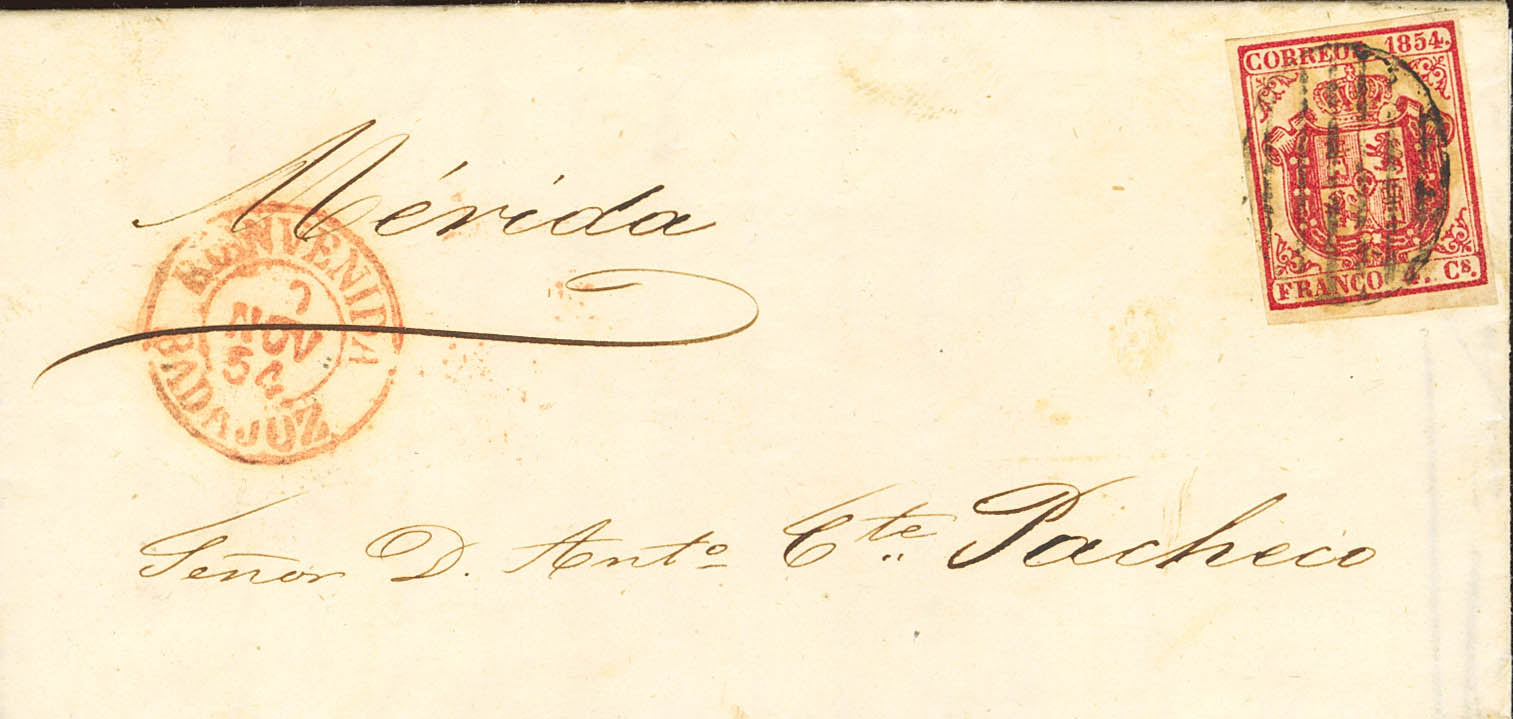 CORREOS 1854.
FRANCO Cs.
Mérida
BONVENIDA
NOV
54
BADAJOZ
Señor D. Antº Cte Pacheco